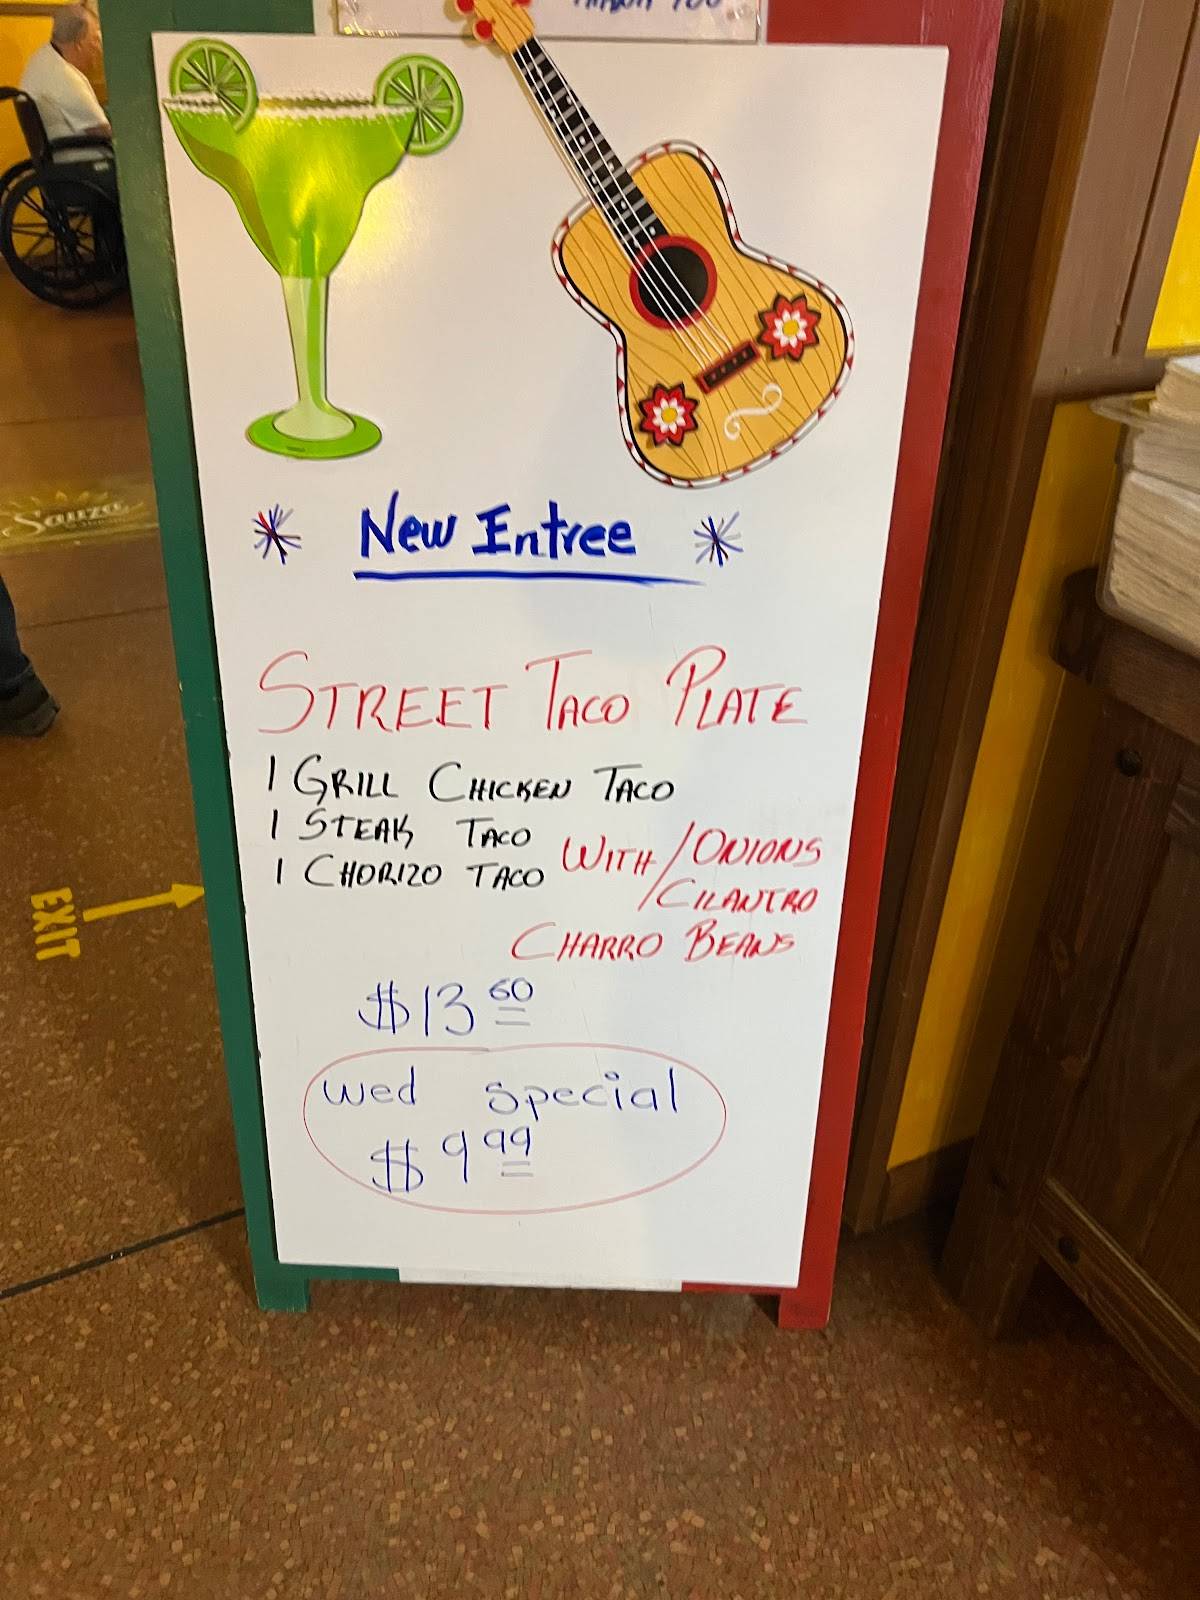 THANK YOU
* New Entree *
STREET TACO PLATE
1 GRILL CHICKEN TACO
1 STEAK TACO
1 CHORIZO TACO WITH / ONIONS
/ CILANTRO
CHARRO BEANS
$13 60
Wed special
$9 99
Sauza
EXIT